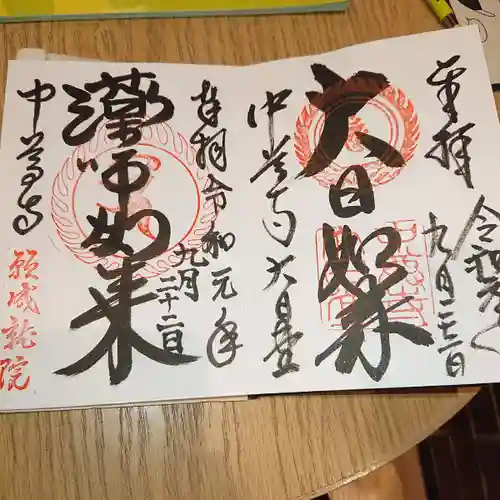 奉拝
令和元年
九月二十二日
大日如来
中尊寺大日堂
奉拝
令和元年
九月二十二日
薬師如来
中尊寺
願成就院